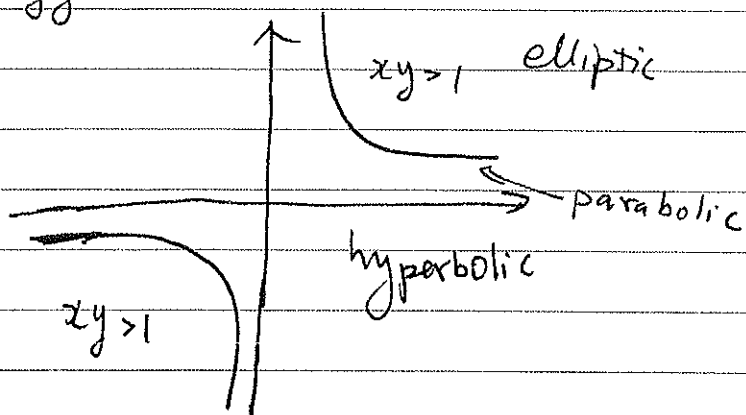 xy>1 elliptic
parabolic
hyperbolic
xy>1